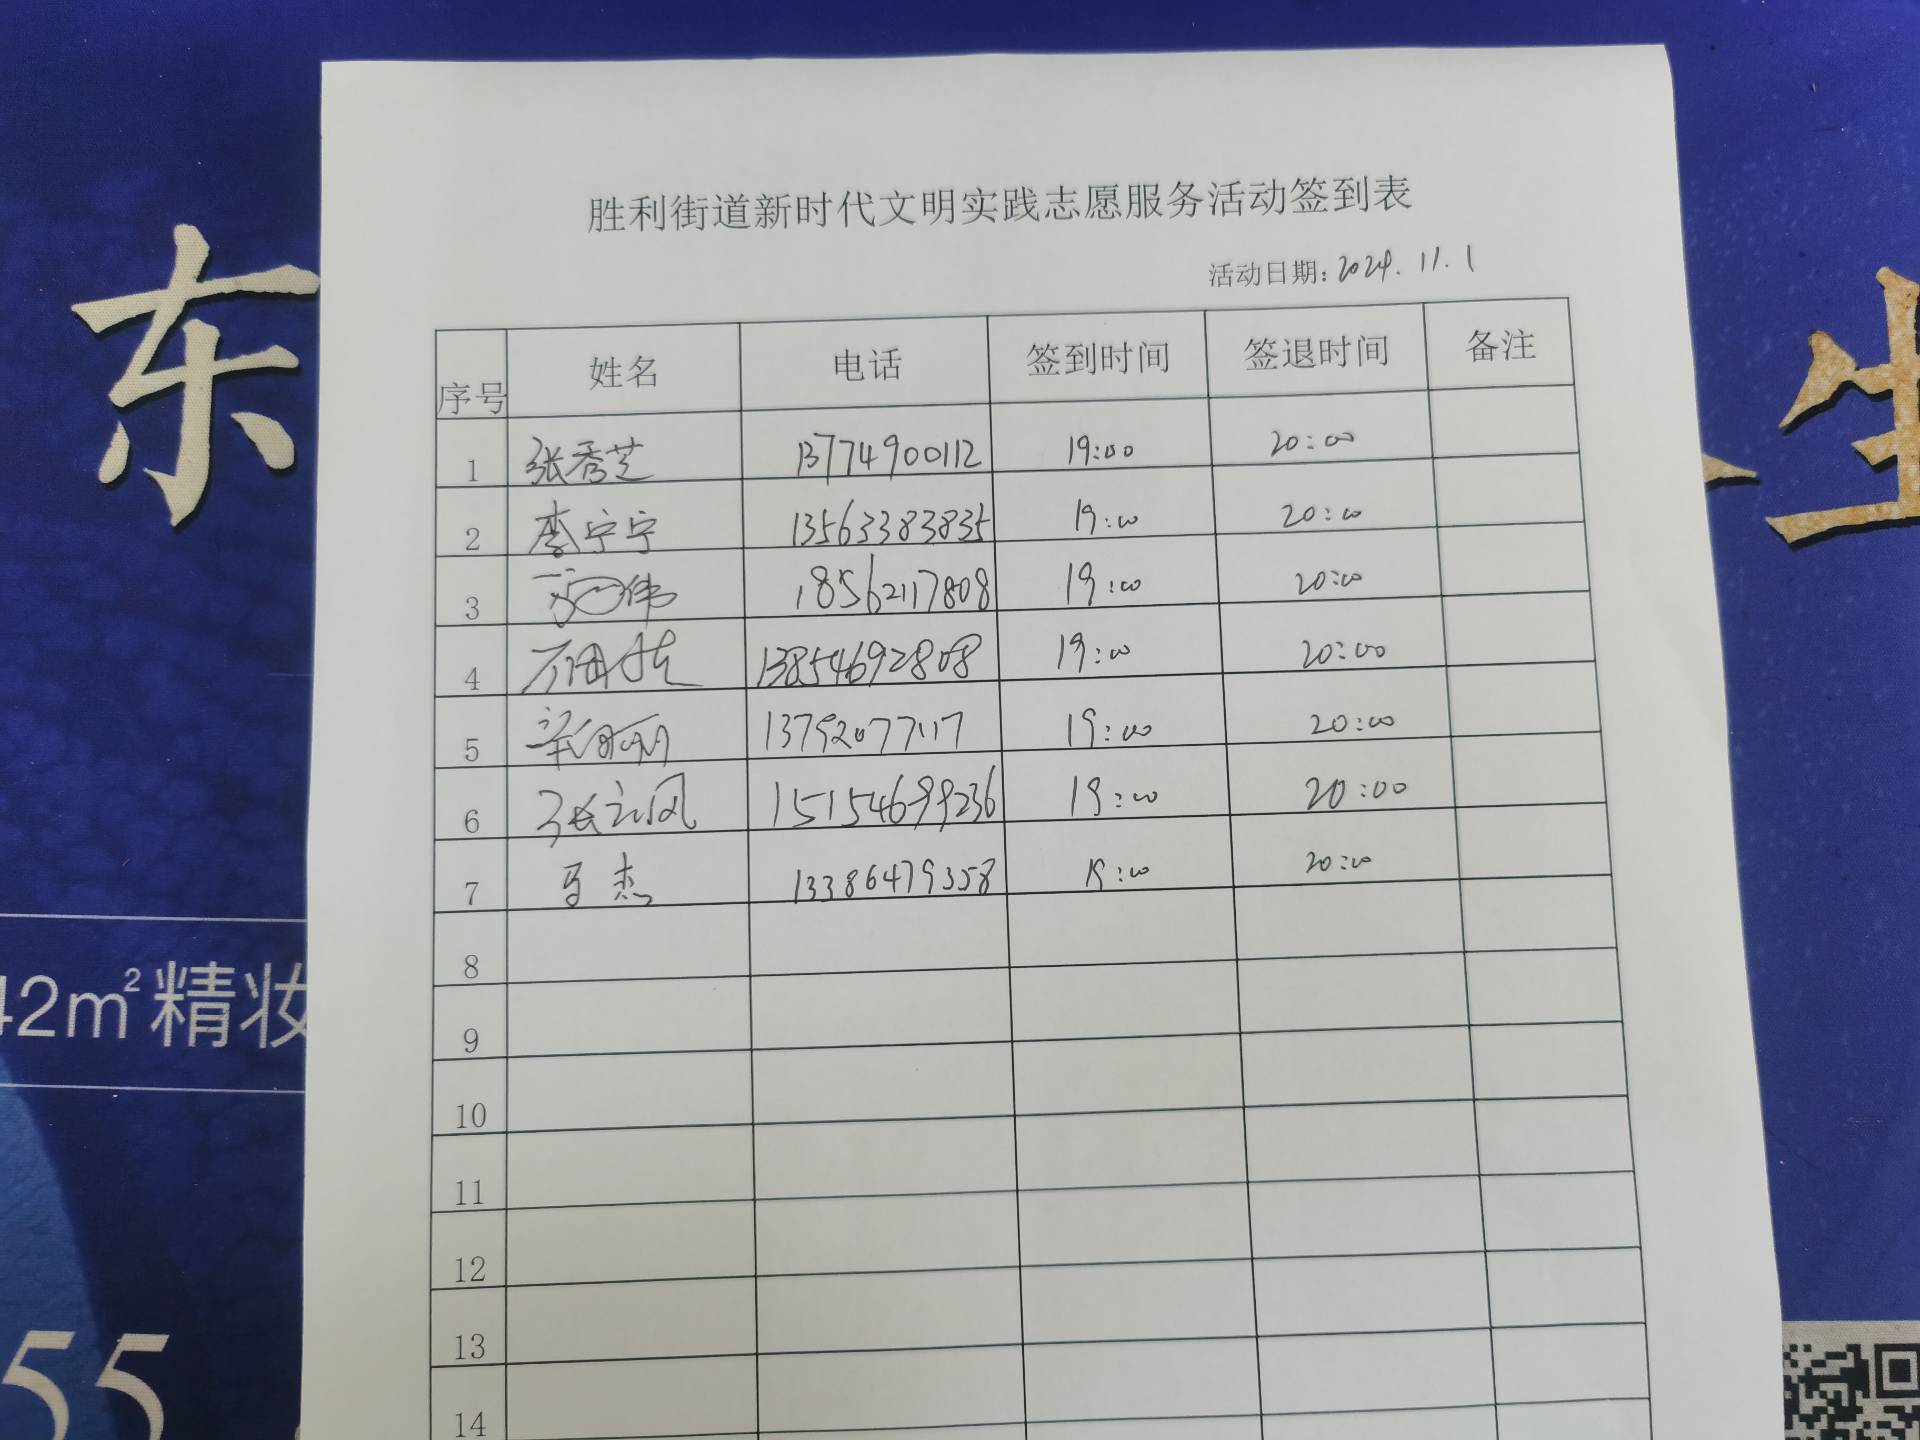 胜利街道新时代文明实践志愿服务活动签到表
活动日期: 2024. 11. 1
序号 姓名 电话 签到时间 签退时间 备注
1 张秀芝 13774900112 19:00 20:00
2 李宁宁 13563383835 19:00 20:00
3 18562117808 19:00 20:00
4 13854692808 19:00 20:00
5 13792077117 19:00 20:00
6 张立凤 15154699236 19:00 20:00
7 马杰 13386479358 19:00 20:00
8
9
10
11
12
13
14
东
生
42m²精妆
55